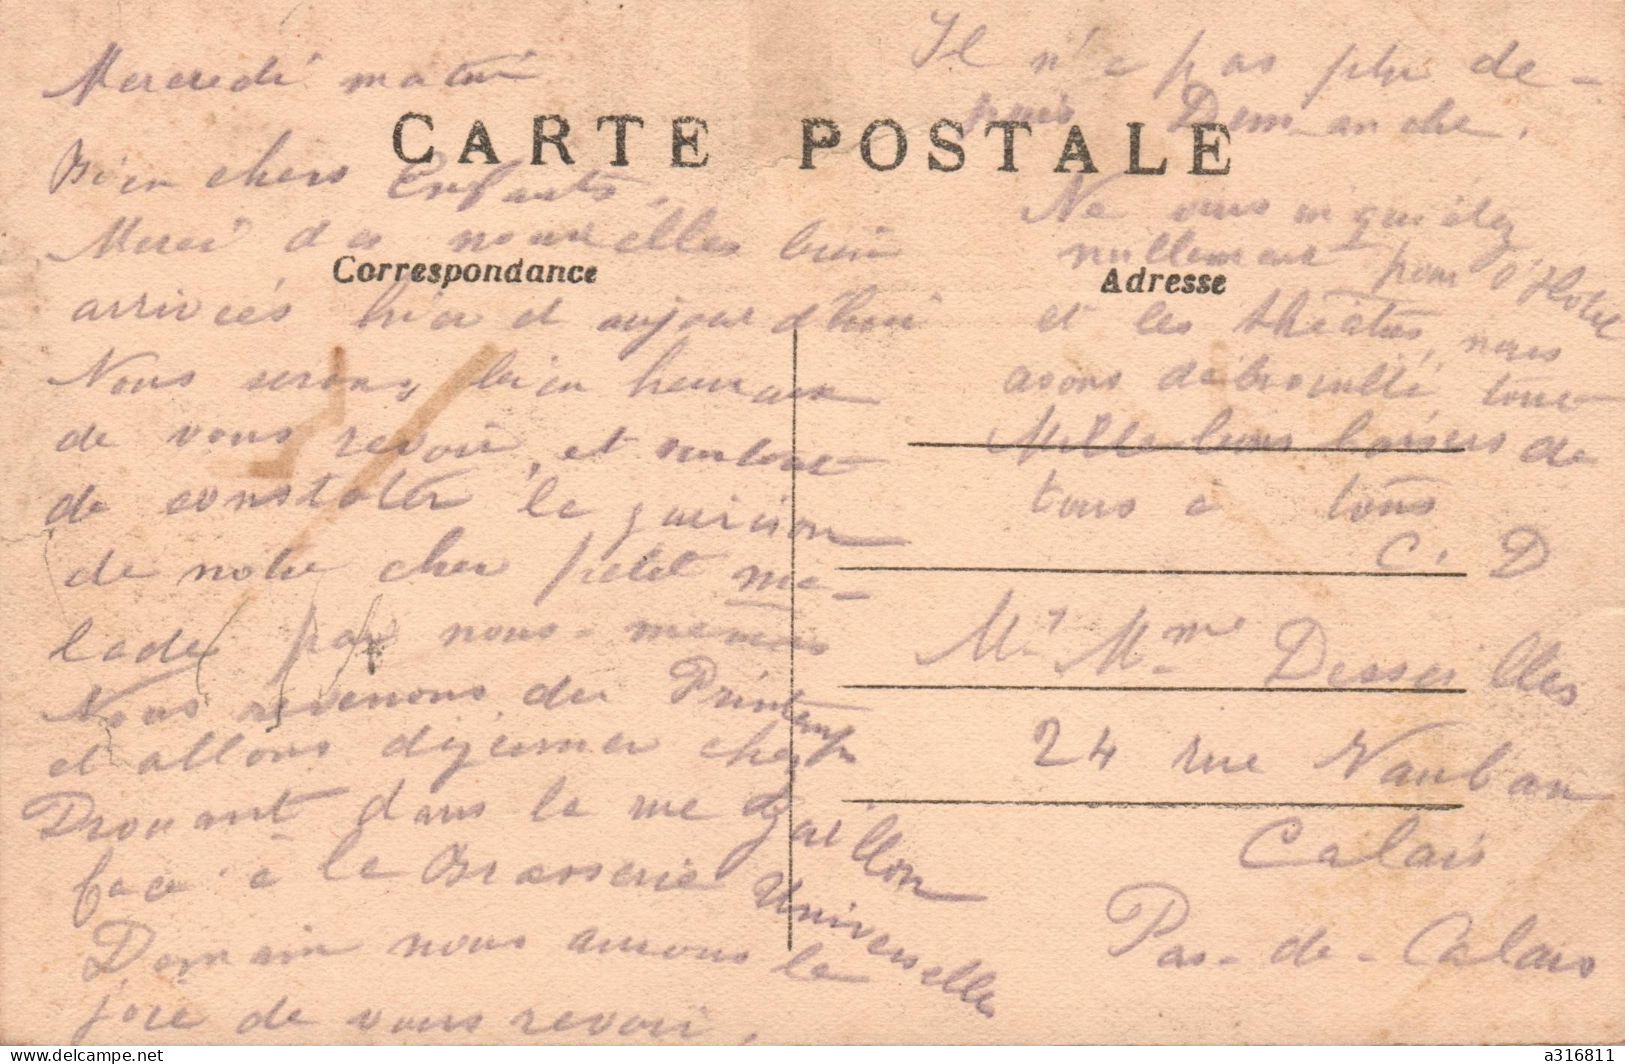 Mercredi matin
CARTE POSTALE
Bien chers Enfants,
Correspondance
Merci des nouvelles bien
arrivées hier et aujourd'hui
Nous serons bien heureux
de vous revoir, et surtout
de constater la guérison
de notre cher petit ma-
lade par nous-mêmes
Nous revenons du Printemps
et allons déjeuner chez
Drouant dans la rue Gaillon
face à la Brasserie Universelle
Demain nous aurons la
joie de vous revoir.
Il n'a pas plu de-
puis Dimanche.
Ne vous inquiétez
nullement pour l'Hotel
Adresse
et les théâtres, nous
avons débrouillé tout
Mille bons baisers de
tous à tous
C. D
Mr Mme Desseilles
24 rue Vauban
Calais
Pas-de-Calais
a316811